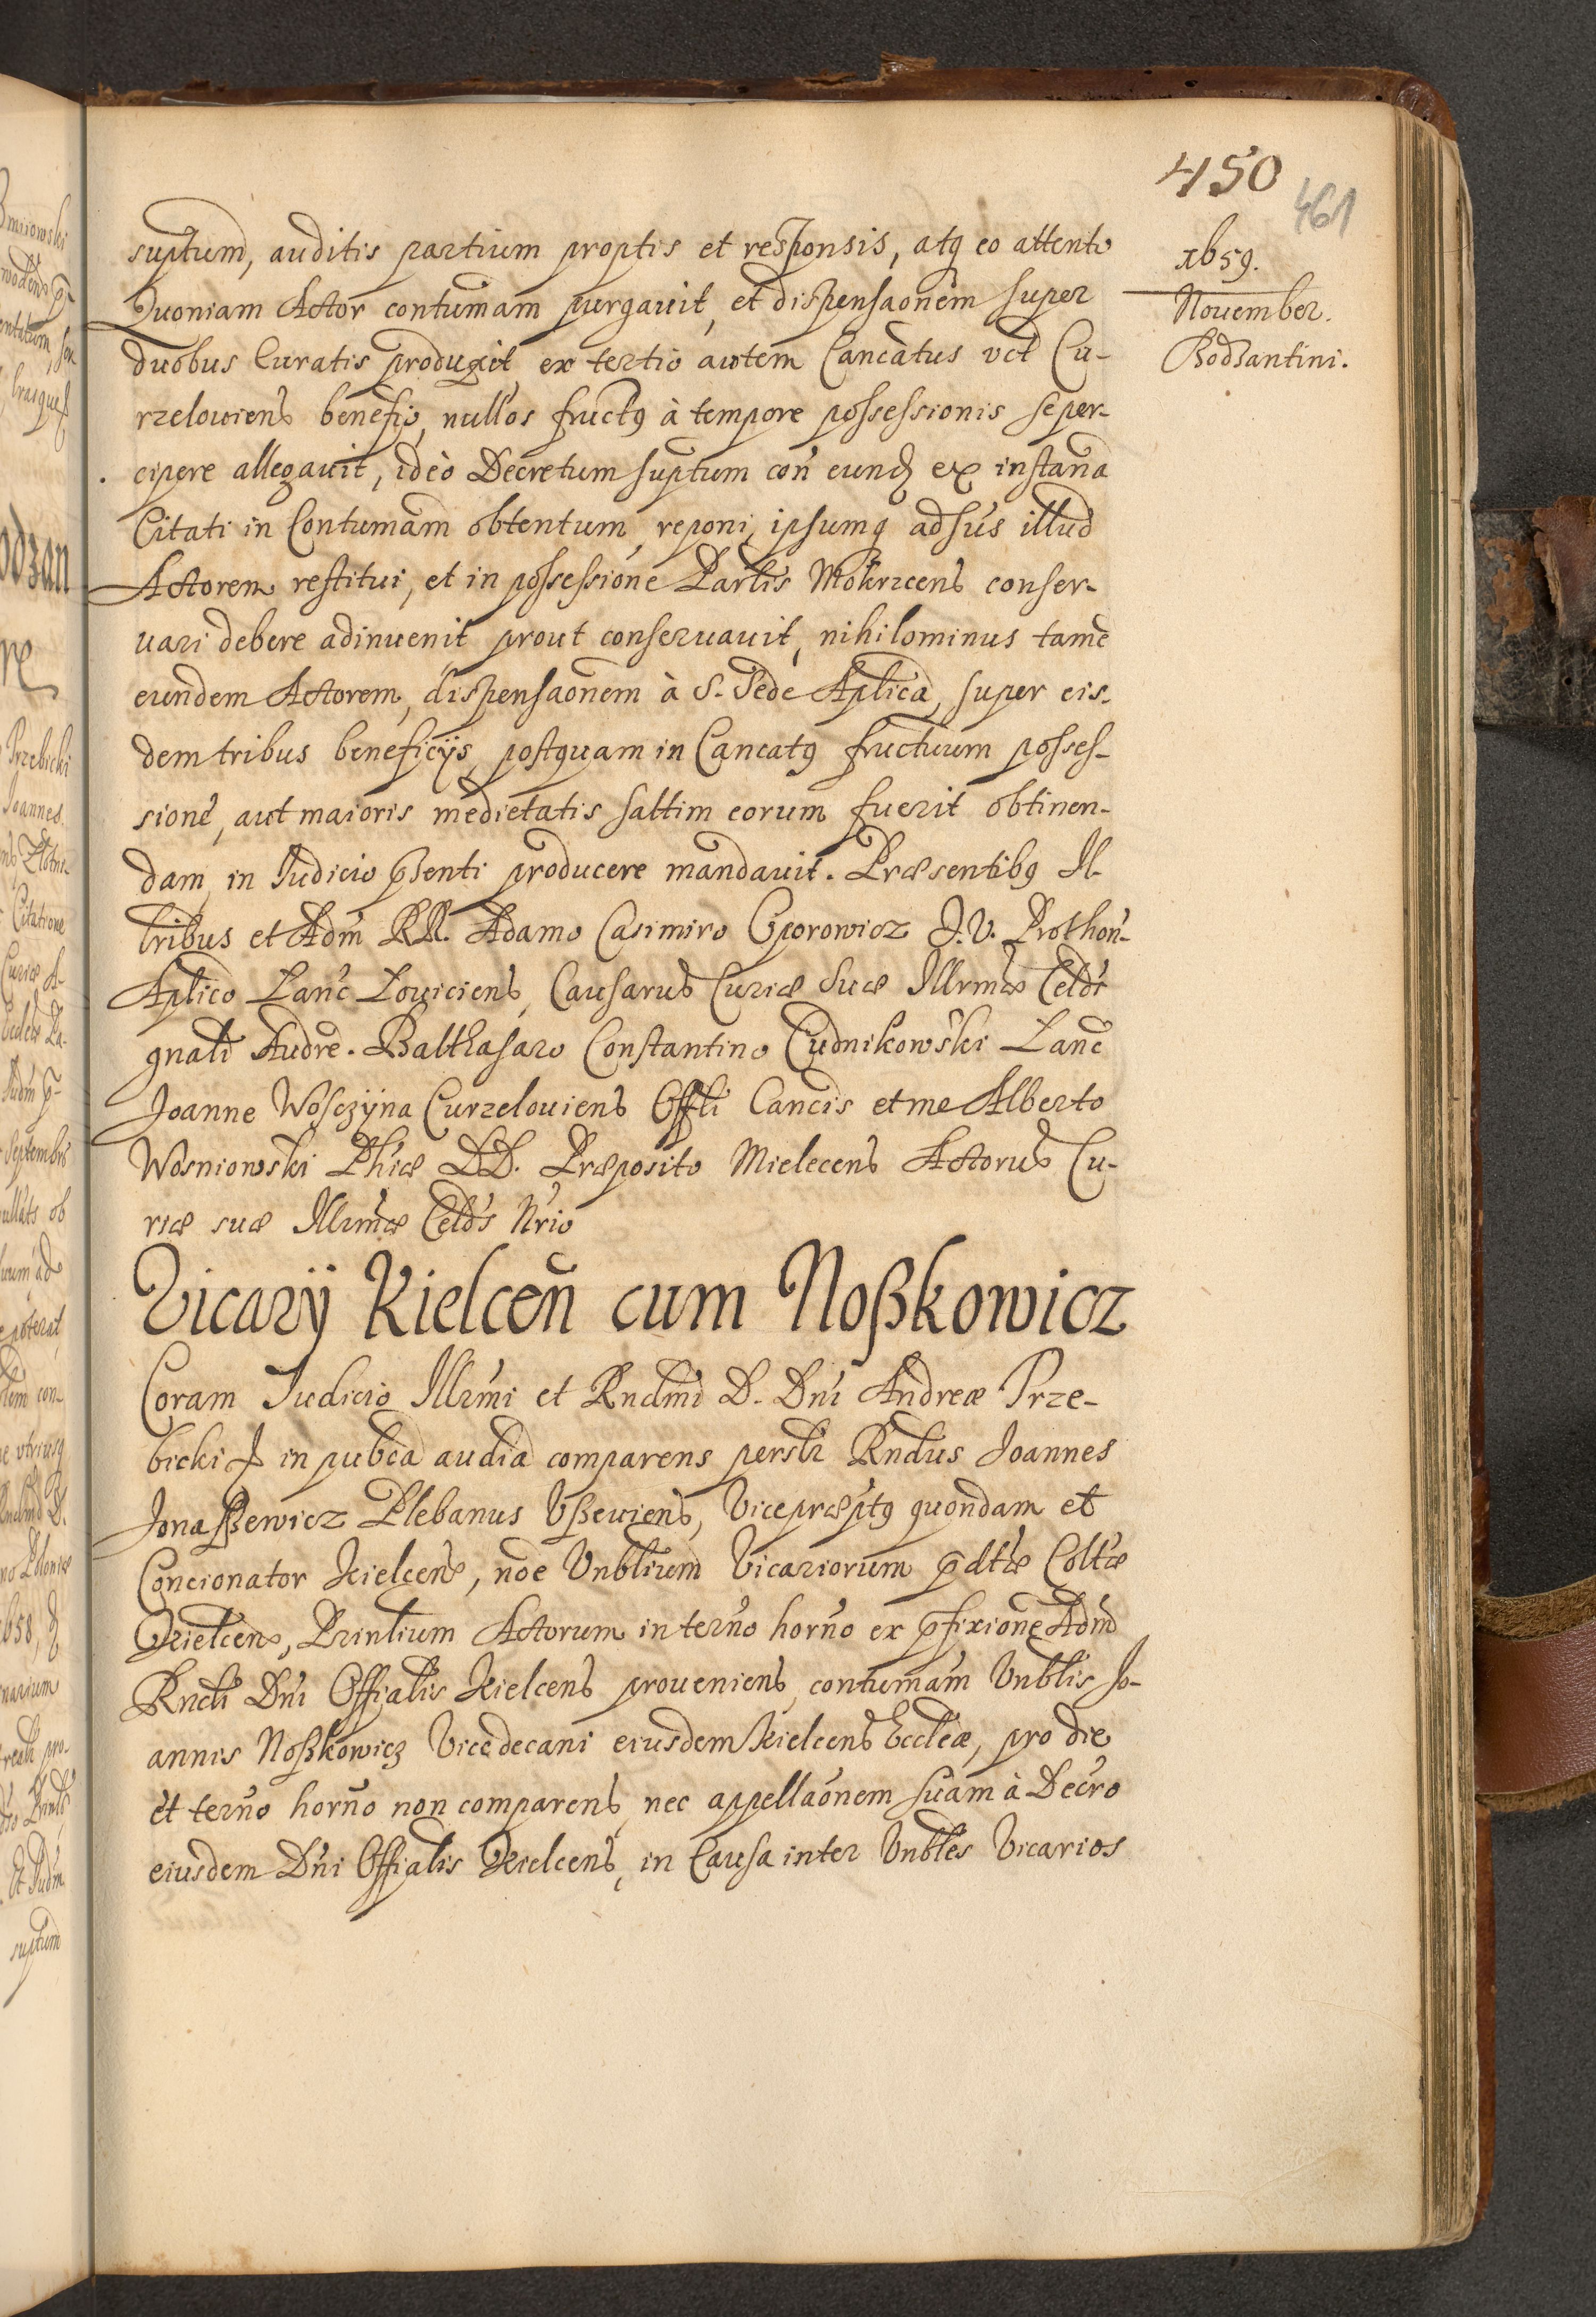 450
461
1659.
November.
Bodzantini.
suptum, auditis partium proptis et responsis, atq eo attento
Quoniam Actor contumam purgauit, et dispensaonem super
duobus Curatis produxit, ex tertio autem Cancatus vct Cu-
rzelouiens benefio, nullos fructq à tempore possessionis se per-
cipere allegauit, ideò Decretum suptum con eund ex instana
Citati in Contumam obtentum, reponi, ipsumq ad sus illud
Actorem restitui, et in possessione Partis Mokrzcens conser-
uari debere adinuenit prout conseruauit, nihilominus tame
eundem Actorem, dispensaonem à S. Sede Aplica, super eis-
dem tribus beneficijs, postquam in Cancatq fructuum posses-
sione, aut maioris medietatis saltim eorum fuerit obtinen-
dam, in Iudicio psenti producere mandauit. Præsentibq Il-
tribus et Adm RR. Adamo Casimiro Oporowicz I.V. Prothon-
Aplico Canc Louiciens, Causarum Curiæ Suæ Illrmæ Celdis
gnali Audre. Balthasaro Constantino Cudnikowski Canc
Joanne Wosczyna Curzelouiens Offli Cancis et me Alberto
Wosniowski Phiæ DD. Præposito Mielecens Actorum Cu-
riæ suæ Illrmæ Celdis Nrio
Vicarij Kielcen cum Noßkowicz
Coram Iudicio Illrmi et Rndmi D. Dni Andreæ Trze-
bicki in pubca audia comparens persłr Rndus Joannes
Jonaßewicz Plebanus Vßeuiens, Vicepræptq quondam et
Concionator Kielcens, noe Vnblium Vicariorum pdtæ Coltæ
Kielcens, Prinlium Actorum in terno horno ex pfixione Adm
Rndi Dni Offialis Kielcens proueniens, contumam Vnblis Jo-
annis Noßkowicz Vicedecani eiusdem Kielcens Eccleæ, pro die
et terno horno non comparens, nec appellaonem suam à Decro
eiusdem Dni Offialis Kielcens, in Causa inter Vnbles Vicarios